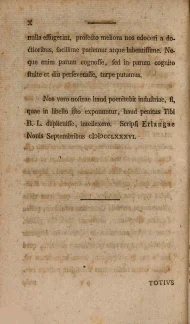 X
nulla effugerint, profecto meliora nos edoceri a do-
ctioribus, facillime patiemur atque lubentissime. Ne-
que enim parum cognosse, sed in parum cognito
stulte et diu perseverasse, turpe putamus.
Nos vero nostrae haud poenitebit industriae, si,
quae in libello isto exponuntur, haud penitus Tibi
B. L. displicuisse, intellexero. Scripsi Erlangae
Nonis Septembribus cIɔIɔccLXXXVI.
TOTIVS